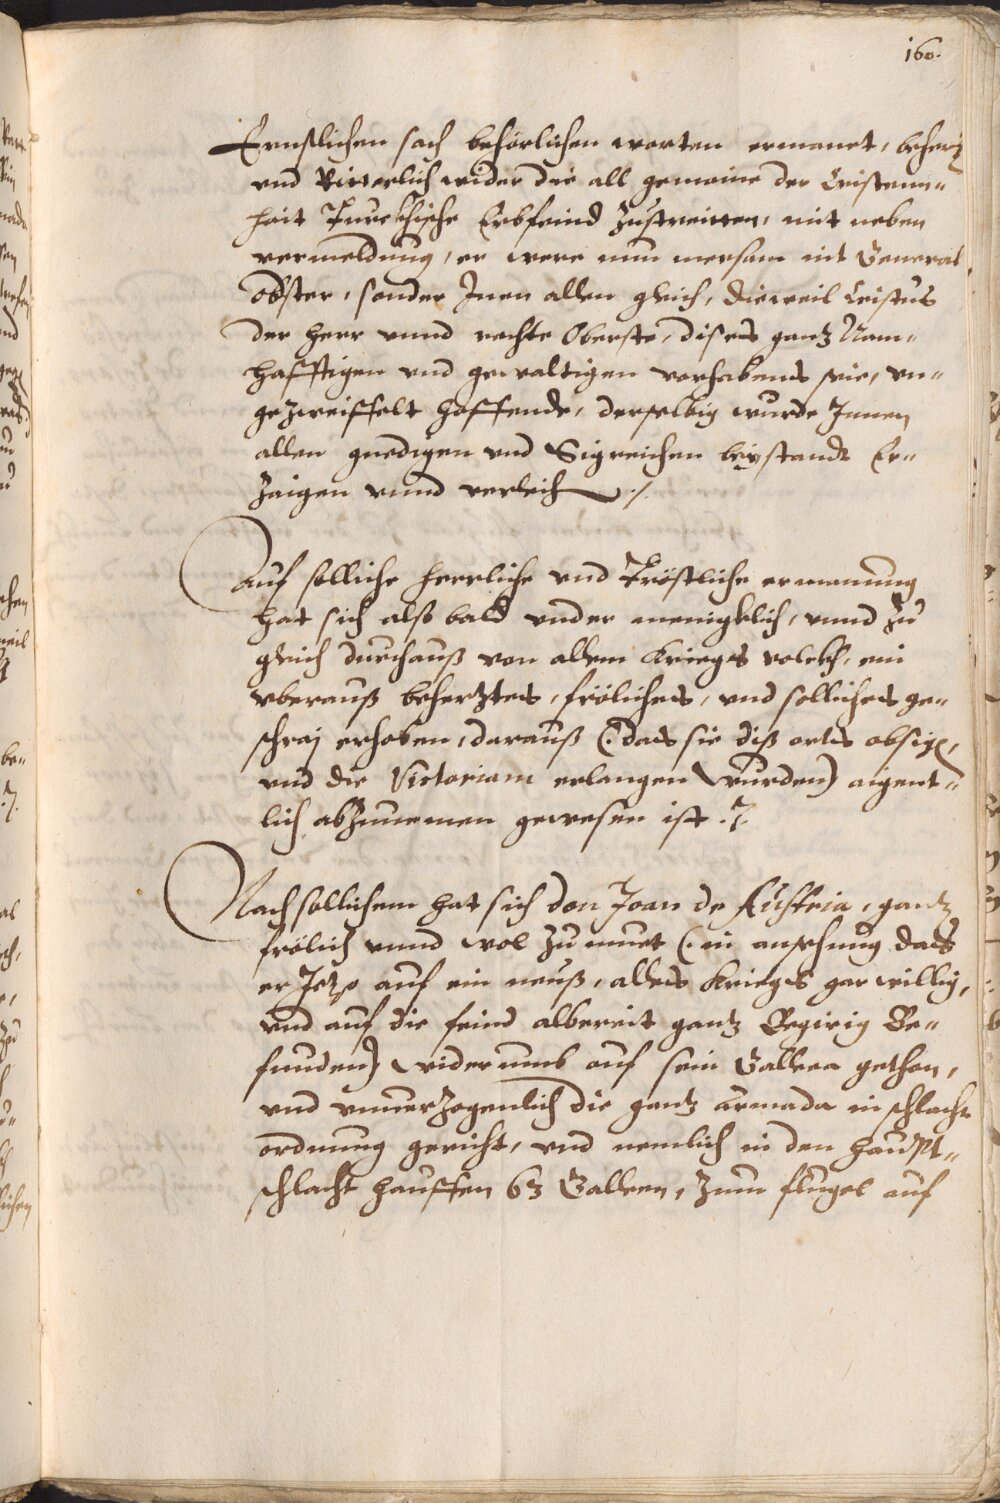 160.
Ernstlichen sach behörlichen worten ermanet, beherzt
vnd Ritterlich wider die all gemaine der Cristenn-
hait Turckhische Erbfeind zustreitten, mit neben
vermeldung, er were nun mersam nit General
obster, sonder Inen allen gleich, dieweil Cristus
der herr vnnd rechte Oberste, dises gantz Nam-
hafftigen vnd gewaltigen vorhabens seie, vn-
gezweiffelt hoffende, derselbig wurde Innen
allen gnedigen vnd Sigreichen beystandt Er-
zaigen vnnd verleich ./.
Auf solliche herrliche vnd Tröstliche ermanung
hat sich alß bald vnder menigklich, vnnd zu
gleich durchauß von allem kriegs volckh, ein
vberauß behertztes, fröliches, vnd solliches ge-
schraj erhoben, darauß (: das sie diß orts obsigen,
vnd die Victoriam erlangen wurden) aigent-
lich abzunemen gewesen ist ./.
Nach sollichem hat sich don Joan de Austria, gantz
frölich vnnd wol zu muet (: in ansehung das
er Jetzo auf ein neuß, alles kriegs gar willig,
vnd auf die feind albereit gantz Begirig Be-
funden) widerumb auf sein Gallea gethon,
vnd vnuerzogenlich die gantz armada in schlacht
ordnung gericht, vnd nemlich in den haupt-
schlacht hauffen 63 Galleen, zum flugel auf